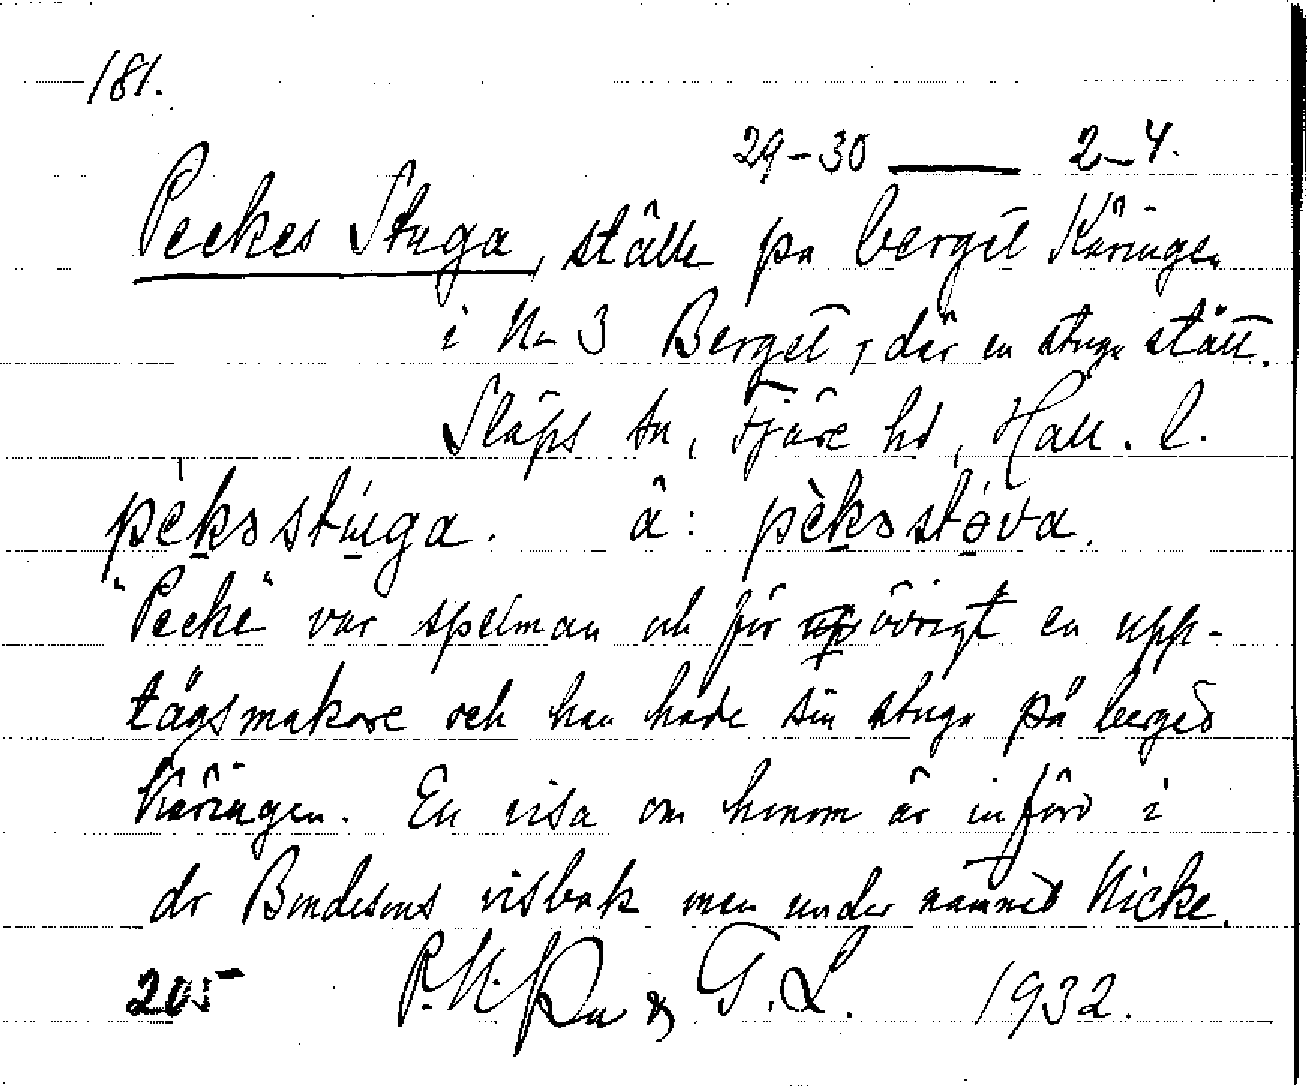 181.
29-30 — 2-4.
Peckes Stuga, ställe på berget Käringen
i Nr 3 Berget, där en stuga stått.
Släps sn, Fjäre hd, Hall. l.
pèksstuga. ä: pèksstova.
"Pecke" var spelman och för övrigt en upp-
tågsmakare och han hade sin stuga på berget
Käringen. En visa om honom är införd i
dr Bondesons visbok men under namnet Nicke.
205 P.N. & G.L. 1932.